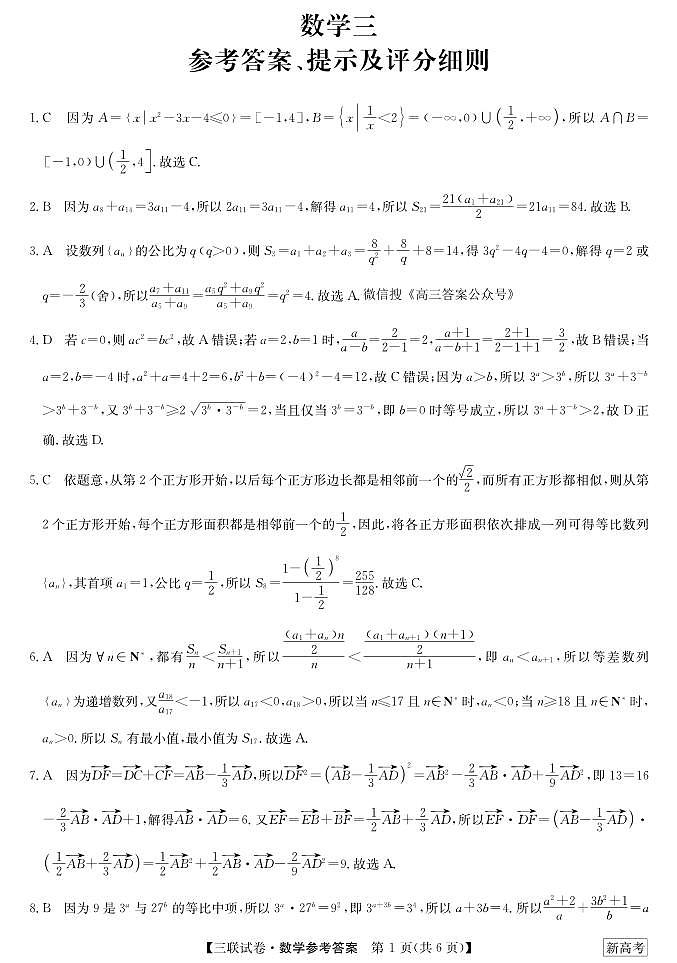 数学三
参考答案、提示及评分细则
1. C 因为 A={x|x²-3x-4≤0}=[-1,4],B={x|1/x<2}=(-∞,0)∪(1/2,+∞),所以 A∩B=
[-1,0)∪(1/2,4]. 故选 C.
2. B 因为 a₈+a₁₄=3a₁₁-4,所以 2a₁₁=3a₁₁-4,解得 a₁₁=4,所以 S₂₁=21(a₁+a₂₁)/2=21a₁₁=84. 故选 B.
3. A 设数列{aₙ}的公比为 q(q>0),则 S₃=a₁+a₂+a₃=8/q²+8/q+8=14,得 3q²-4q-4=0,解得 q=2 或
q=-2/3(舍),所以(a₇+a₁₁)/(a₅+a₉)=(a₅q²+a₉q²)/(a₅+a₉)=q²=4. 故选 A. 微信搜《高三答案公众号》
4. D 若 c=0,则 ac²=bc²,故 A 错误;若 a=2,b=1 时,a/(a-b)=2/(2-1)=2,(a+1)/(a-b+1)=(2+1)/(2-1+1)=3/2,故 B 错误;当
a=2,b=-4 时,a²+a=4+2=6,b²+b=(-4)²-4=12,故 C 错误;因为 a>b,所以 3ᵃ>3ᵇ,所以 3ᵃ+3⁻ᵇ
>3ᵇ+3⁻ᵇ,又 3ᵇ+3⁻ᵇ≥2√(3ᵇ·3⁻ᵇ)=2,当且仅当 3ᵇ=3⁻ᵇ,即 b=0 时等号成立,所以 3ᵃ+3⁻ᵇ>2,故 D 正
确. 故选 D.
5. C 依题意,从第 2 个正方形开始,以后每个正方形边长都是相邻前一个的√2/2,而所有正方形都相似,则从第
2 个正方形开始,每个正方形面积都是相邻前一个的1/2,因此,将各正方形面积依次排成一列可得等比数列
{aₙ},其首项 a₁=1,公比 q=1/2,所以 S₈=(1-(1/2)⁸)/(1-1/2)=255/128. 故选 C.
6. A 因为 ∀n∈N*,都有 Sₙ/n<Sₙ₊₁/(n+1),所以 ((a₁+aₙ)n/2)/n<((a₁+aₙ₊₁)(n+1)/2)/(n+1),即 aₙ<aₙ₊₁,所以等差数列
{aₙ}为递增数列,又a₁₈/a₁₇<-1,所以 a₁₇<0,a₁₈>0,所以当 n≤17 且 n∈N*时,aₙ<0;当 n≥18 且 n∈N*时,
aₙ>0. 所以 Sₙ 有最小值,最小值为 S₁₇. 故选 A.
7. A 因为DF→=DC→+CF→=AB→-1/3AD→,所以DF→²=(AB→-1/3AD→)²=AB→²-2/3AB→·AD→+1/9AD→²,即 13=16
-2/3AB→·AD→+1,解得AB→·AD→=6. 又EF→=EB→+BF→=1/2AB→+2/3AD→,所以EF→·DF→=(AB→-1/3AD→)·
(1/2AB→+2/3AD→)=1/2AB→²+1/2AB→·AD→-2/9AD→²=9. 故选 A.
8. B 因为 9 是 3ᵃ 与 27ᵇ 的等比中项,所以 3ᵃ·27ᵇ=9²,即 3ᵃ⁺³ᵇ=3⁴,所以 a+3b=4. 所以(a²+2)/a+(3b²+1)/b=a
【三联试卷·数学参考答案 第 1 页(共 6 页)】 新高考